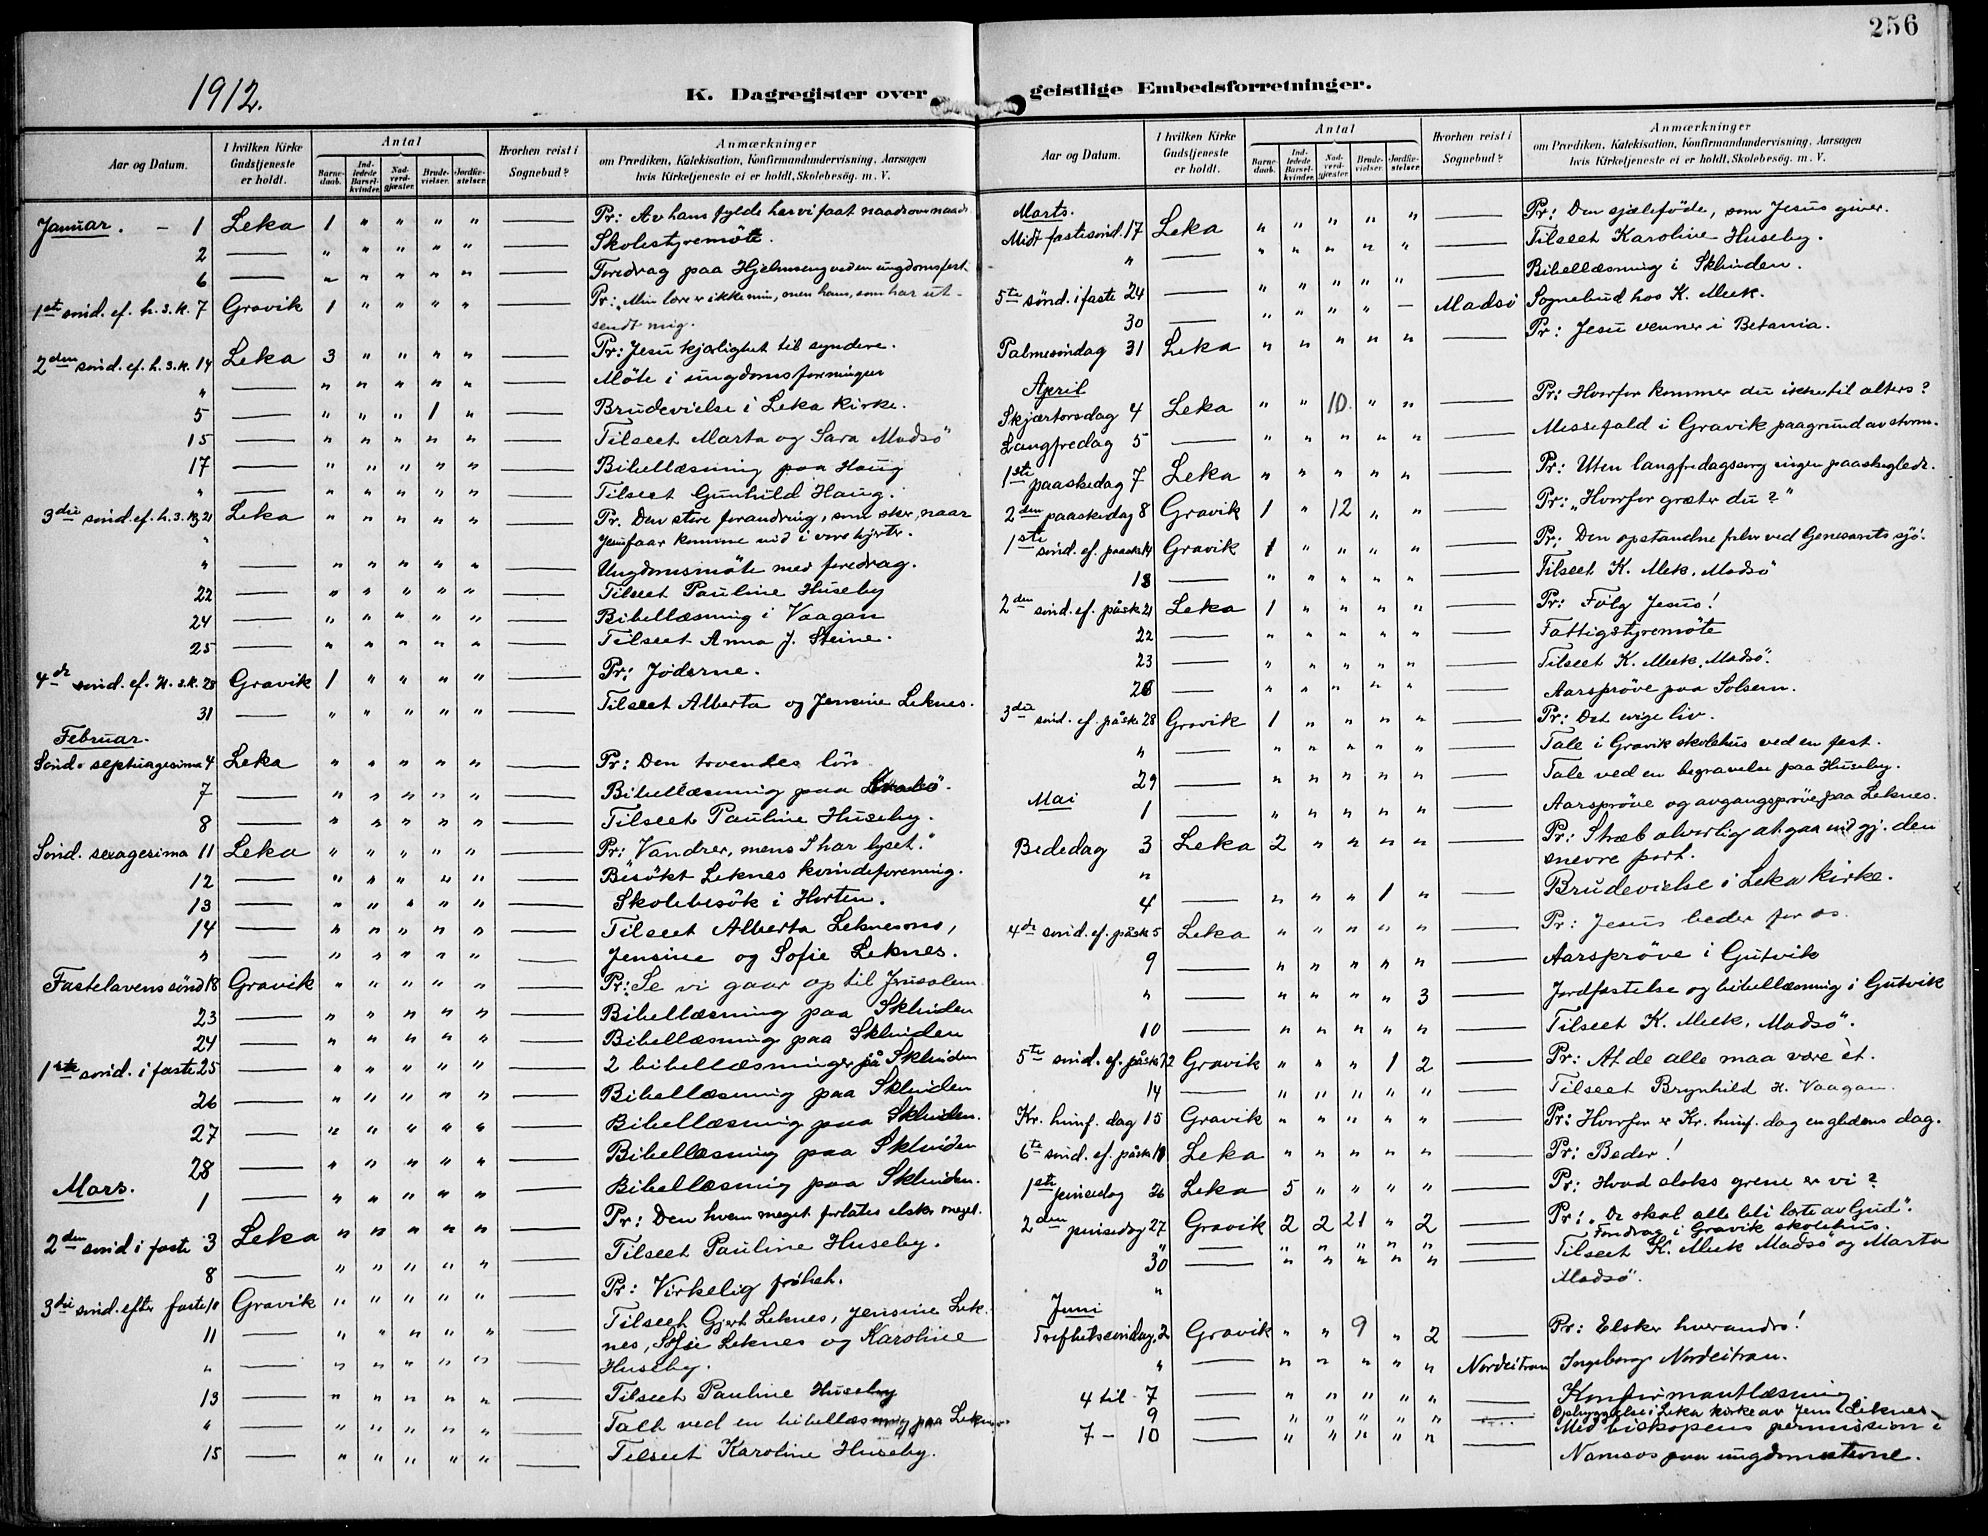 256
1912.
K. Dagregister over
Aar og Datum. | I hvilken Kirke Gudstjeneste er holdt. | Antal | Barnedaab. | Indledede Barselkvinder. | Nadverdgjæster. | Brudevielser. | Jordfæstelser. | Hvorhen reist i Sognebud? | Anmærkninger om Prædiken, Katekisation, Konfirmandundervisning, Aarsagen hvis Kirketjeneste ei er holdt, Skolebesøg. m. V.
Januar. - 1 Leka 1 " " " " — Pr: Av hans fylde har vi faat naade over naade
2 — " " " " " — Skolestyremöte.
6 — " " " " " — Foredrag paa Hjelmseng ved en ungdomsfest
1ste sönd. ef. h. 3. k. 7 Gravik 1 " " " " Pr: "Min lære er ikke min, men hans, som har ut-
sendt mig.
2den sönd. ef. h. 3. k. 14 Leka 3 " " " " — Pr: Jesu kjærlighet til syndere.
" — " " " " " — Möte i ungdomsforeningen
5 — " " " 1 " — Brudevielse i Leka kirke.
15 — " " " " " — Tilseet Marta og Sara Madsö
17 — " " " " " — Bibellæsning paa Haug
" — " " " " " — Tilseet Gunhild Haug.
3die sönd. ef. h. 3. k. 21 Leka " " " " " — Pr. Den store forandring, som sker, naar
" Jesus faar komme ind i vore hjerter.
" — " " " " " — Ungdomsmöte med foredrag.
22 — " " " " " — Tilseet Pauline Huseby
24 — " " " " " — Bibellæsning i Vaagan
25 — " " " " " — Tilseet Anna J. Steine.
4de sönd. ef. H. 3. k. 28 Gravik 1 " " " " — Pr: Jöderne.
31 — " " " " " — Tilseet Alberta og Jensine Leknes.
Februar.
Sönd. septuagesima 4 Leka " " " " " — Pr: Den troendes lön
7 — " " " " " — Bibellæsning paa
8 — " " " " " — Tilseet Pauline Huseby.
Sönd. sexagesima 11 Leka " " " " " — Pr: "Vandrer, mens I har lyset."
12 — " " " " " — Besökt Leknes kvindeforening.
13 — " " " " " — Skolebesök i Horten.
14 — " " " " " — Tilseet Alberta Leknesons,
" — " " " " " — Jensine og Sofie Leknes.
Fastelavens sönd 18 Gravik " " " " " — Pr: Se vi gaar op til Jerusalem
23 — " " " " " — Bibellæsning paa Skleiden
24 — " " " " " — Bibellæsning paa Skleiden
1ste sönd. i faste 25 — " " " " " — 2 bibellæsninger på Skleiden
26 — " " " " " — Bibellæsning paa Skleiden
27 — " " " " " — Bibellæsning paa Skleiden.
28 — " " " " " — Bibellæsning paa Skleiden
Mars.
1 — " " " " " — Bibellæsning paa Skleiden.
2den sönd i faste 3 Leka " " " " " — Pr: Den hvem meget forlates elsker meget.
8 — " " " " " — Tilseet Pauline Huseby.
3die sönd. efter faste 10 Gravik " " " " " — Pr: Virkelig frihet.
11 — " " " " " — Tilseet Gjert Leknes, Jensine Lek-
" — " " " " " — nes, Sofie Leknes og Karoline
Huseby.
13 — " " " " " — Tilseet Pauline Huseby
" — " " " " " — Tale ved en bibellæsning paa Leknes
15 — " " " " " — Tilseet Karoline Huseby.
geistlige Embedsforretninger.
Aar og Datum. | I hvilken Kirke Gudstjeneste er holdt. | Antal | Barnedaab. | Indledede Barselkvinder. | Nadverdgjæster. | Brudevielser. | Jordfæstelser. | Hvorhen reist i Sognebud? | Anmærkninger om Prædiken, Katekisation, Konfirmandundervisning, Aarsagen hvis Kirketjeneste ei er holdt, Skolebesög. m. V.
Marts.
Midt fastesönd. 17 Leka " " " " " — Pr: Den sjæleföde, som Jesus giver.
" — " " " " " — Tilseet Karoline Huseby.
— Bibellæsning i Skleiden.
5te sönd. i faste 24 — " " " " " Madsö Sognebud hos K. Meek.
30 — " " " " —
Palmesöndag 31 Leka " " " " " — Pr: Jesu venner i Betania.
April
Skjærtorsdag 4 Leka " " 10 " " — Pr: Hvorfor kommer du ikke til alters?
Langfredag 5 — " " " " " — Messefald i Gravik paagrund av storm.
1ste paaskedag 7 Leka " " " " " — Pr: Uten langfredagssorg ingen paaskeglede.
2den paaskedag 8 Gravik 1 " 12 " " — Pr: "Hvorfor græter du?"
1ste sönd. ef. paaske 14 Gravik 1 " " " " — Pr: Den opstandne frelser ved Genesarets sjö.
18 — " " " " " — Tilseet K. Meek, Madsö
2den sönd. ef. påsk 21 Leka 1 " " " " — Pr: Fölg Jesus!
22 — " " " " " — Fattigstyremöte
23 — " " " " " — Tilseet K. Meek, Madsö.
26 — " " " " " — Aarspröve paa Solsem.
3die sönd. ef. påske 28 Gravik 1 " " " " — Pr: Det evige liv.
" — " " " " " — Tale i Gravik skolehus ved en fest.
29 — " " " " " — Tale ved en begravelse paa Huseby.
Mai
1 — " " " " " — Aarspröve og avgangspröve paa Leknes.
Bededag 3 Leka 2 " " " " — Pr: Stræb alvorlig at gaa ind gj. den
" snevre port.
4 — " " " 1 " — Brudevielse i Leka kirke.
4de sönd. ef. påsk 5 Leka " " " " " — Pr: Jesus beder for os.
9 — " " " " " — Aarspröve i Gutvik
" — " " " " 3 — Jordfæstelse og bibellæsning i Gutvik
10 — " " " " " — Tilseet K. Meek, Madsö.
5te sönd. ef. påsk 12 Gravik " " " 1 2 — Pr: At de alle maa være ét.
14 — " " " " " — Tilseet Brynhild H. Vaagan.
Kr. himf. dag 15 Gravik " " " " " — Pr: Hvorfor er Kr. himf. dag en gledens dag.
6te sönd. ef. påsk 19 Leka " " " " " — Pr: Beder!
1ste pinsedag 26 Leka 5 " " " " — Pr: Hvad slags grene er vi?
2den pinsedag 27 Gravik 2 2 21 " 2 — Pr: "De skal alle bli lærte av Gud".
" — " " " " " — Foredrag i Gravik skolehus.
30 — " " " " " — Tilseet K. Meek Madsö og Marta
" Madsö.
Juni
Trefhetssöndag, 2 Gravik " " 9 " 2 — Pr: Elsker hverandre!
" — " " " " " Nordeitran Ingeborg Nordeitran.
4 til 7 — " " " " " — Konfirmantlæsning.
9 — " " " " " Opbyggelse i Leka kirke av Jens Leknes
7 — 10 — " " " " " — Med biskopens permission i
Namsos paa ungdomsstevne.